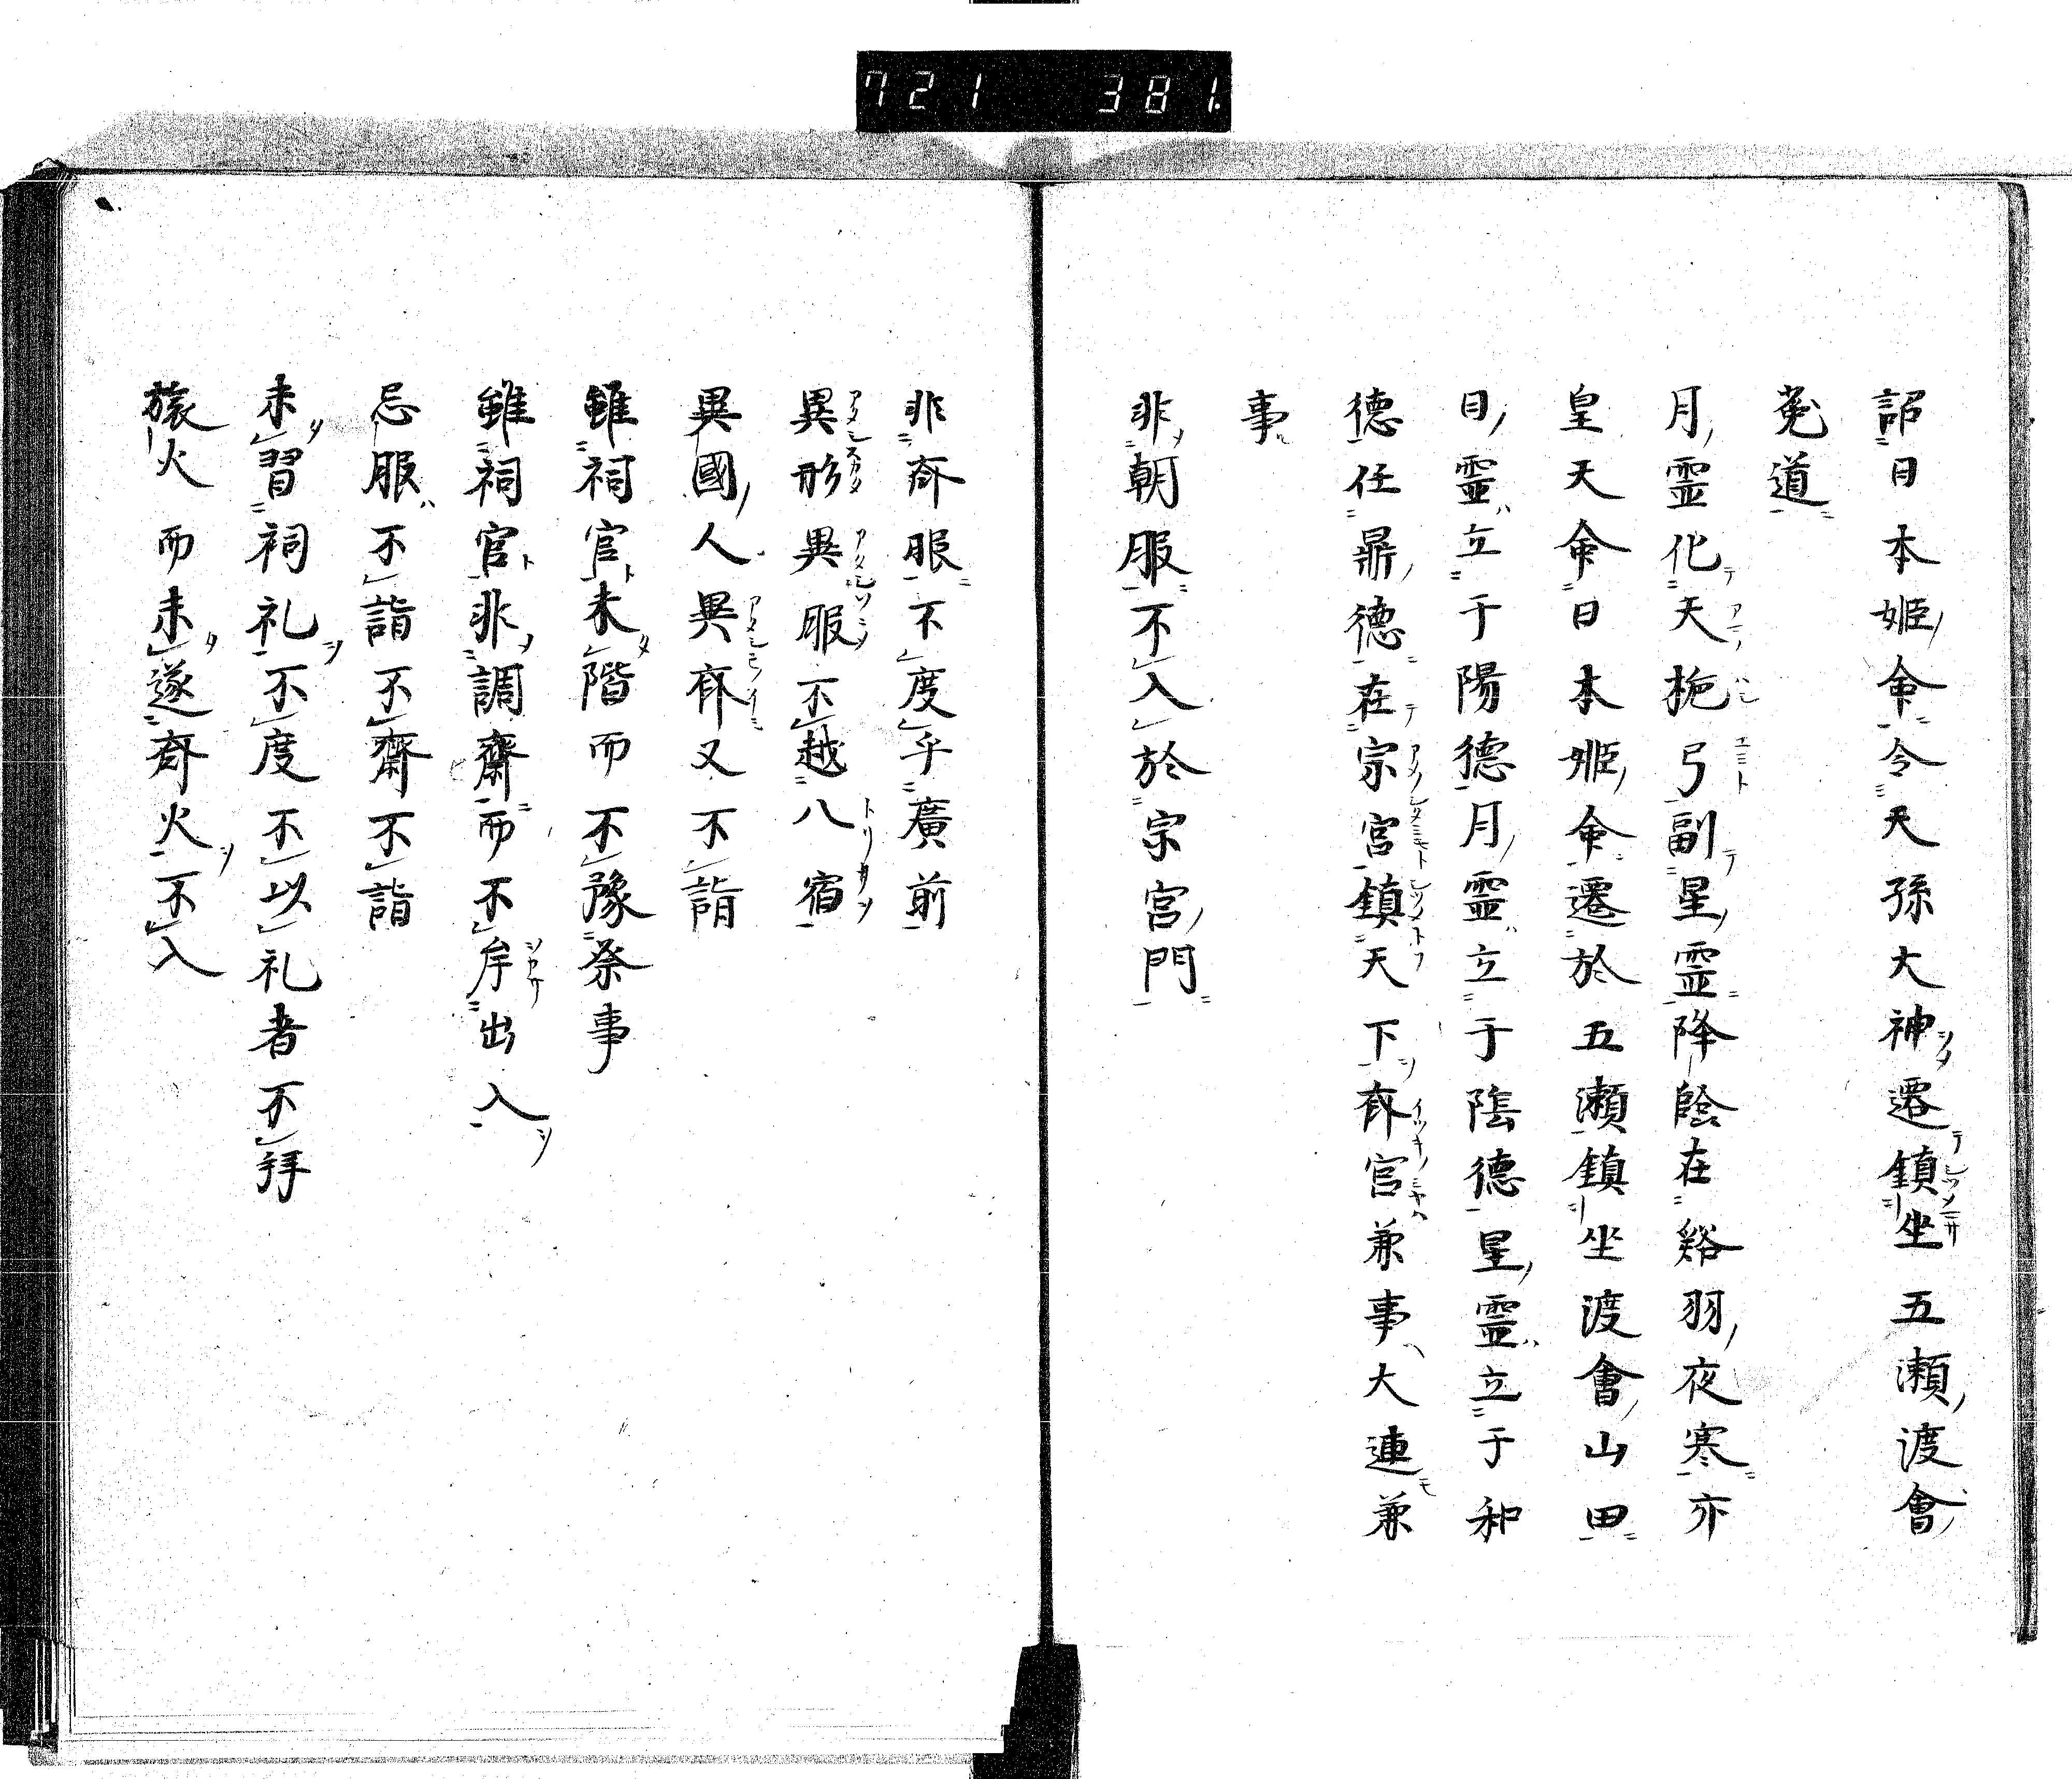 721 381.
詔日本姬命令天孫大神遷鎮坐五瀬渡會
菟道
月霊化天梔弓副星霊降陰在谿羽夜寒亦
皇天命日本姬命遷於五瀬鎮坐渡會山田
日霊立于陽德月霊立于陰德星霊立于和
德任鼎德在宗宮鎮天下斎宮兼事大連兼
事
非朝服不入於宗宮門
非斎服不度乎廣前
異形異服不越八宿
異國人異斎又不詣
雖祠官未階而不豫祭事
雖祠官非調齋而不牟出入
忌服不詣不齋不詣
未習祠礼不度不以礼者不拜
旅火而未遂斎火不入